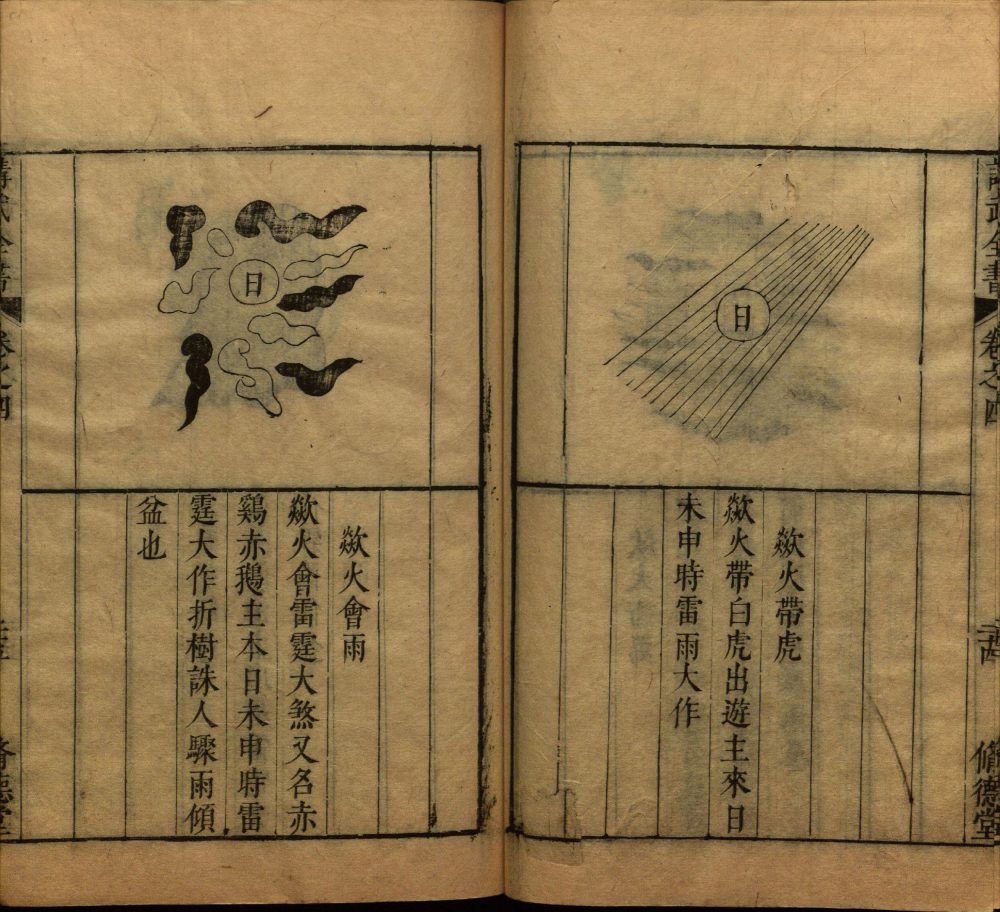 講武全書
卷之四
備德堂
日
歘火帶虎
歘火帶白虎出遊主來日
未申時雷雨大作
日
歘火會雨
歘火會雷霆大煞又名赤
鷄赤鵝主本日未申時雷
霆大作折樹誅人驟雨傾
盆也
講武全書
卷之四